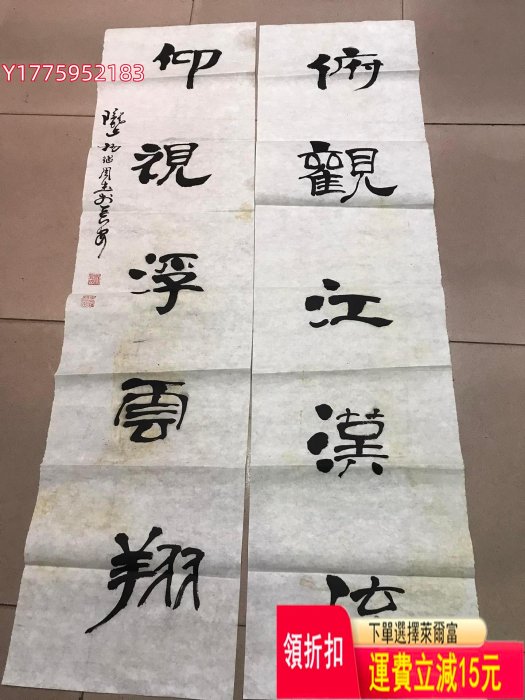 Y1775952183
俯觀江漢流
仰視浮雲翔
領折扣
下單選擇萊爾富
運費立減15元